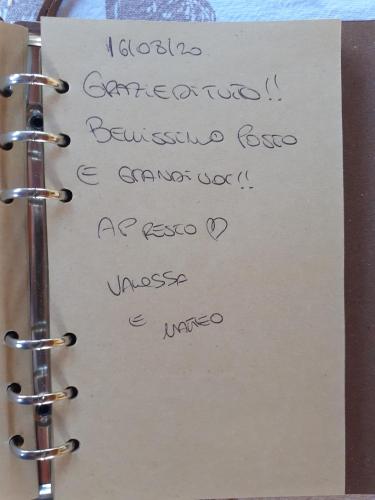 16/08/20
GRAZIE DI TUTO!!
BELLISSIMO POSTO
E GRANDI VOI!!
A PRESTO ♡
VANESSA
E MATTEO